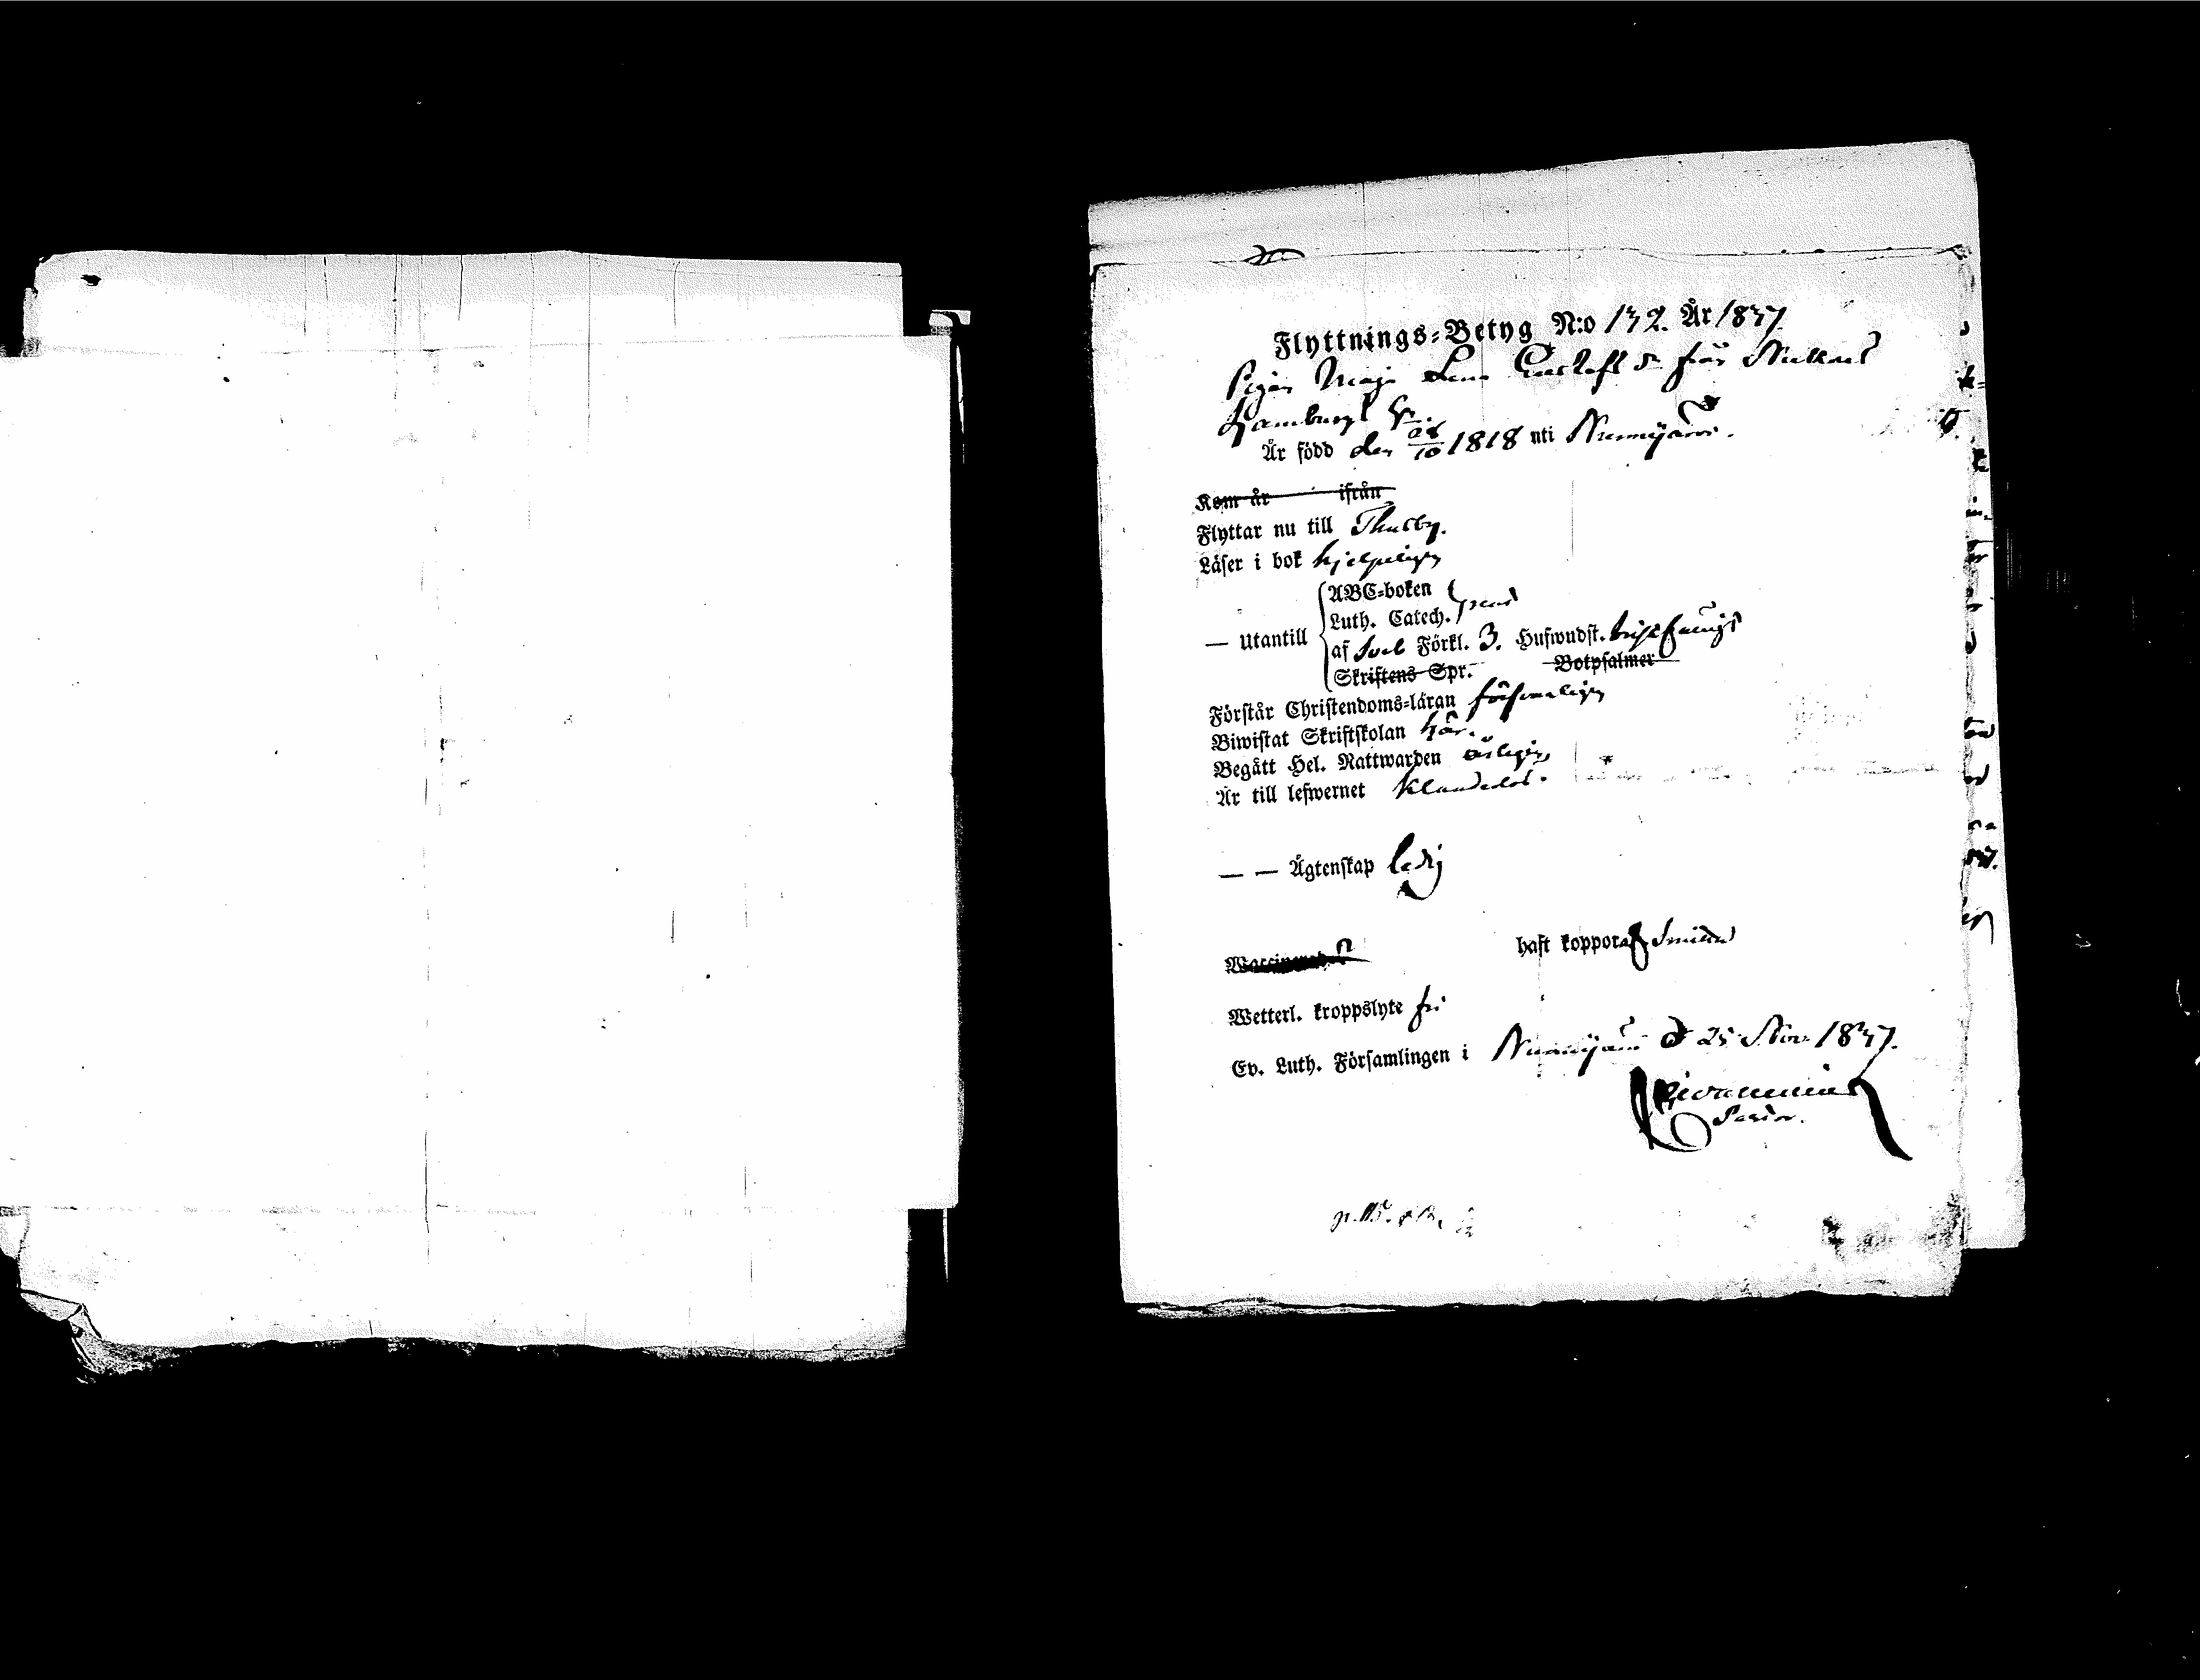 Flyttnings=Betyg N:o 132. År 1837.
Pigan Maja Lena Gustafs d. från
År född den 26/10 1818 uti Nurmijärvi.
Kom år ifrån
Flyttar nu till Thusby.
Läser i bok hjelpeligen
ABC=boken
Luth. Catech.
— Utantill af Sveb Förkl. 3. Hufwudst.
Skriftens Spr. Botpsalmer
Förstår Christendoms=läran försvarligen
Biwistat Skriftskolan här.
Begått Hel. Nattwarden årligen
Är till lefwernet klanderlös.
— — Ägtenskap ledig
haft koppor
Wetterl. kroppslyte fri
Ev. Luth. Församlingen i Nurmijärvi d 25 Nov. 1837.
Pastor.